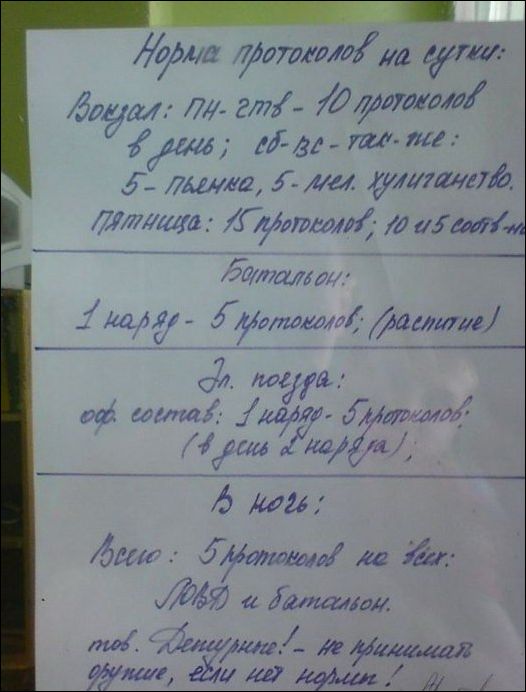 Норма протоколов на сутки:
Вокзал: ПН-ЧТВ - 10 протоколов
в день; сб-вс-так-же:
5-пьянка, 5-мел. хулиганство.
Пятница: 15 протоколов; 10 и 5 соотв-но
Батальон:
1 наряд - 5 протоколов; (распитие)
Эл. поезда:
оф. состав: 1 наряд - 5 протоколов;
(в день 2 наряда);
В ночь:
Всего: 5 протоколов на всех:
ЛОВД и батальон.
тов. Дежурные! - не принимать
оружие, если нет нормы!